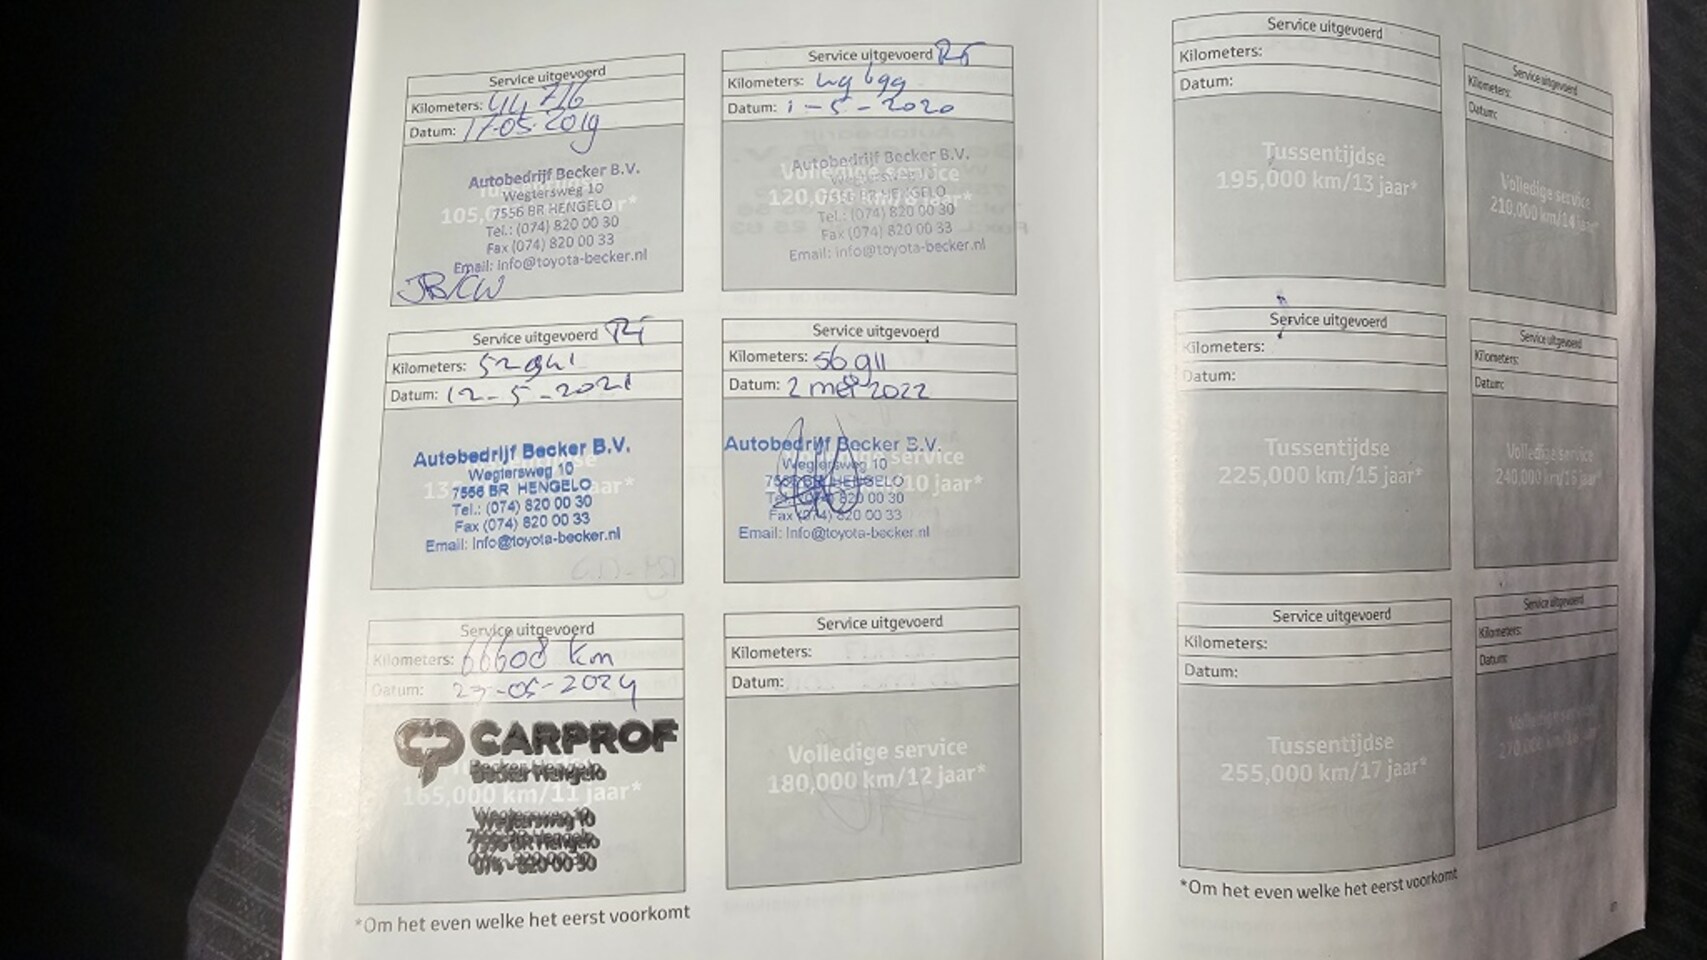 Service uitgevoerd
Kilometers: 44 716
Datum: 17-05-2019
Autobedrijf Becker B.V.
Wegtersweg 10
7556 BR HENGELO
Tel.: (074) 820 00 30
Fax (074) 820 00 33
Email: info@toyota-becker.nl
JB/CW
Service uitgevoerd
Kilometers: 49 699
Datum: 1-5-2020
Autobedrijf Becker B.V.
Volledige service
120,000 km/8 jaar*
HENGELO
Tel.: (074) 820 00 30
Fax (074) 820 00 33
Email: info@toyota-becker.nl
Service uitgevoerd
Kilometers:
Datum: 12-5-2021
Autobedrijf Becker B.V.
Wegtersweg 10
7556 BR HENGELO
Tel.: (074) 820 00 30
Fax (074) 820 00 33
Email: Info@toyota-becker.nl
Service uitgevoerd
Kilometers: 56 911
Datum: 2 mei 2022
Autobedrijf Becker B.V.
Wegtersweg 10
HENGELO
Fax (074) 820 00 33
Email: Info@toyota-becker.nl
Service uitgevoerd
Kilometers: 66608 km
Datum: 27-05-2024
CARPROF
Becker Hengelo
165,000 km/11 jaar*
Wegtersweg 10
7556 BR Hengelo
074-820 00 30
Service uitgevoerd
Kilometers:
Datum:
Volledige service
180,000 km/12 jaar*
*Om het even welke het eerst voorkomt
Service uitgevoerd
Kilometers:
Datum:
Tussentijdse
195,000 km/13 jaar*
Service uitgevoerd
Kilometers:
Datum:
Volledige service
210,000 km/14 jaar*
Service uitgevoerd
Kilometers:
Datum:
Tussentijdse
225,000 km/15 jaar*
Service uitgevoerd
Kilometers:
Datum:
Volledige service
240,000 km/16 jaar*
Service uitgevoerd
Kilometers:
Datum:
Tussentijdse
255,000 km/17 jaar*
Service uitgevoerd
Kilometers:
Datum:
Volledige service
*Om het even welke het eerst voorkomt